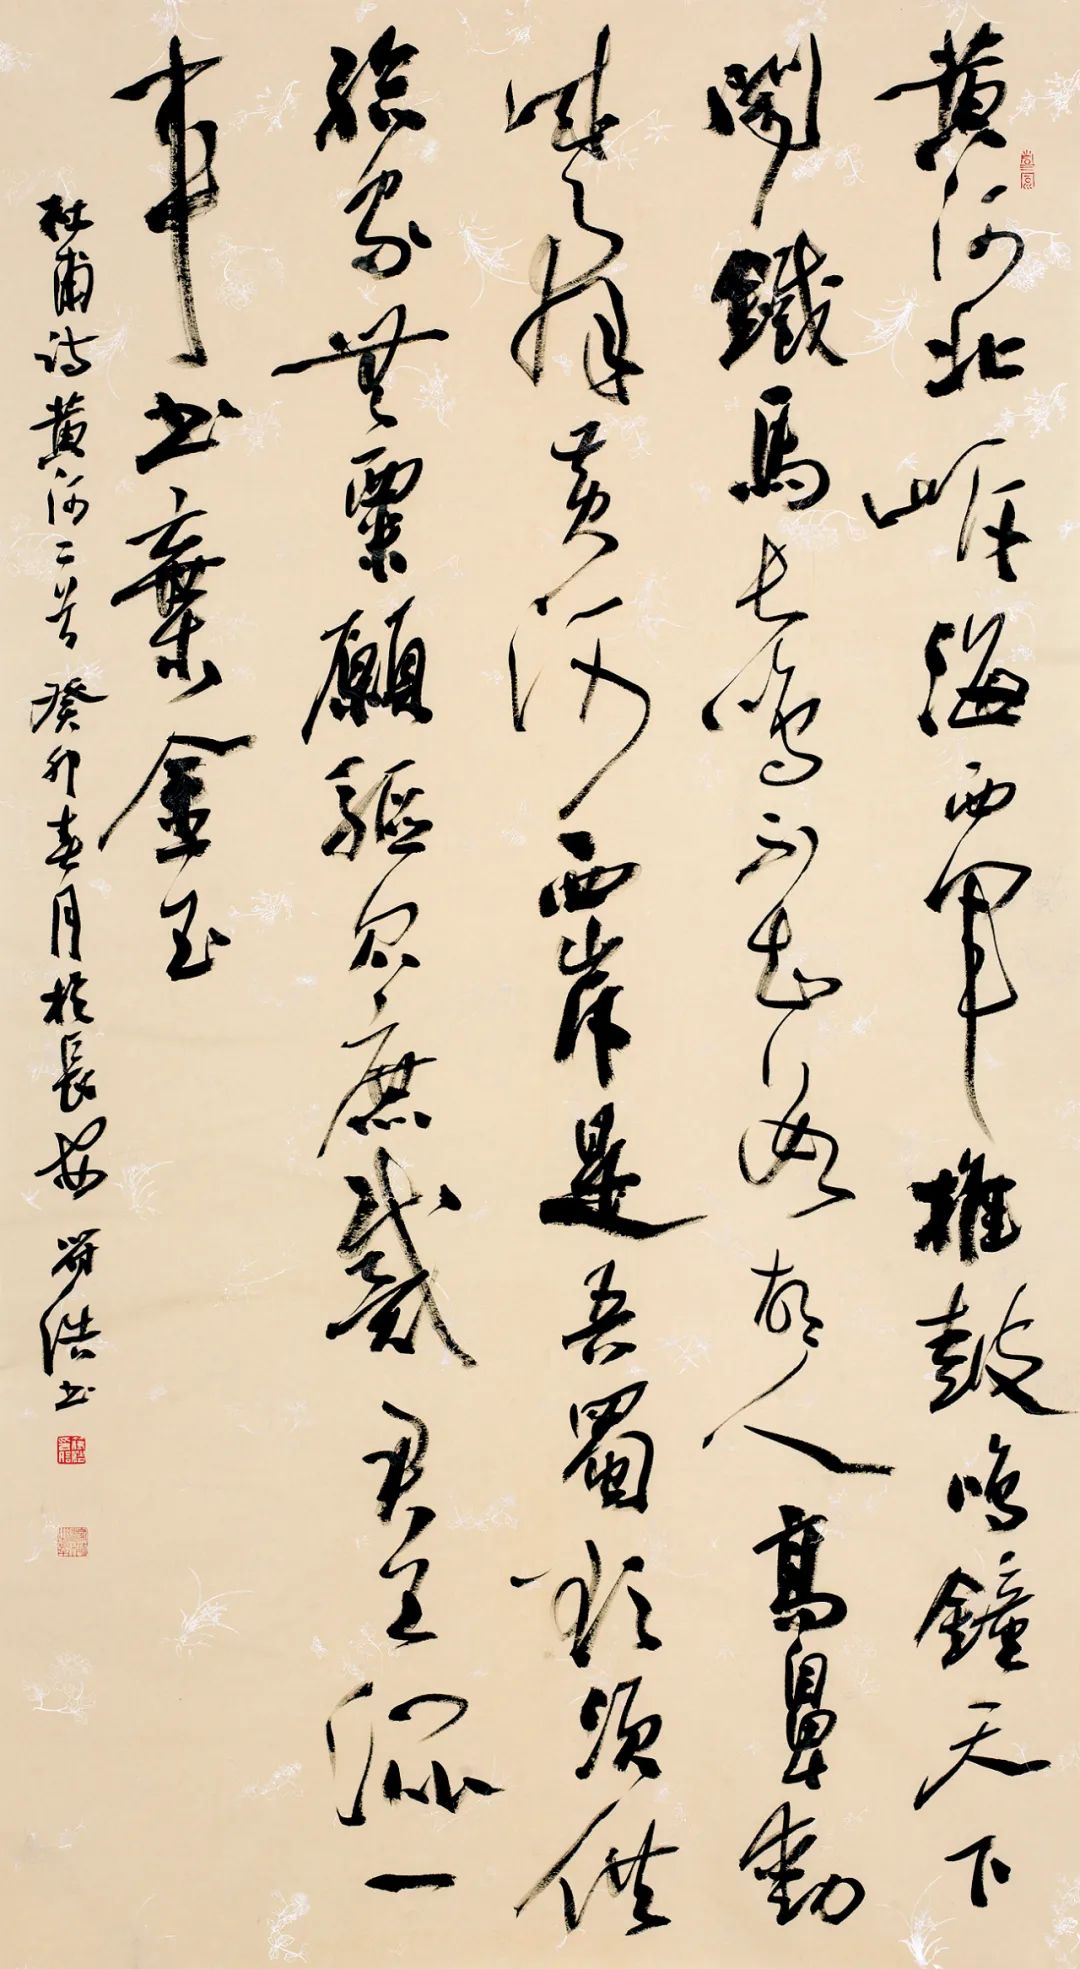 黃河北岸海西軍椎鼓鳴鐘天下
聞鐵馬長鳴不知數胡人高鼻動
成群黃河西岸是吾蜀欲須供
給家無粟願驅眾庶戴君王混一
車書棄金玉
杜甫詩黃河二首 癸卯春月於長安 浩書